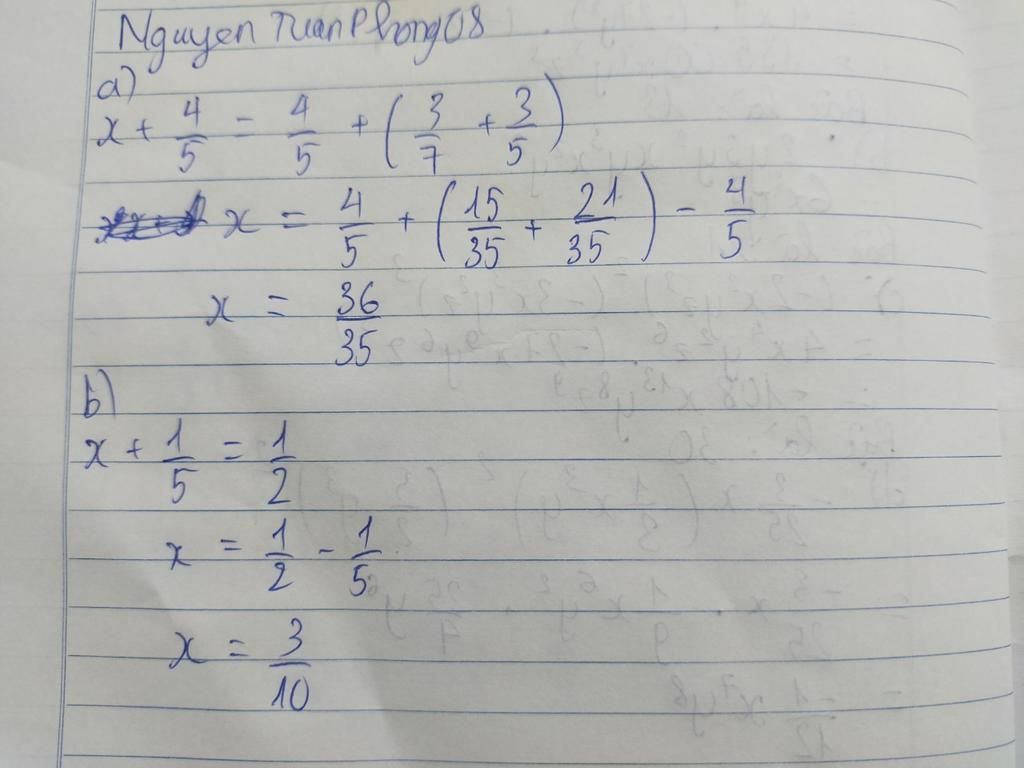 Nguyen TuanPhong08
a)
x + 4/5 = 4/5 + (3/7 + 3/5)
x = 4/5 + (15/35 + 21/35) - 4/5
x = 36/35
b)
x + 1/5 = 1/2
x = 1/2 - 1/5
x = 3/10